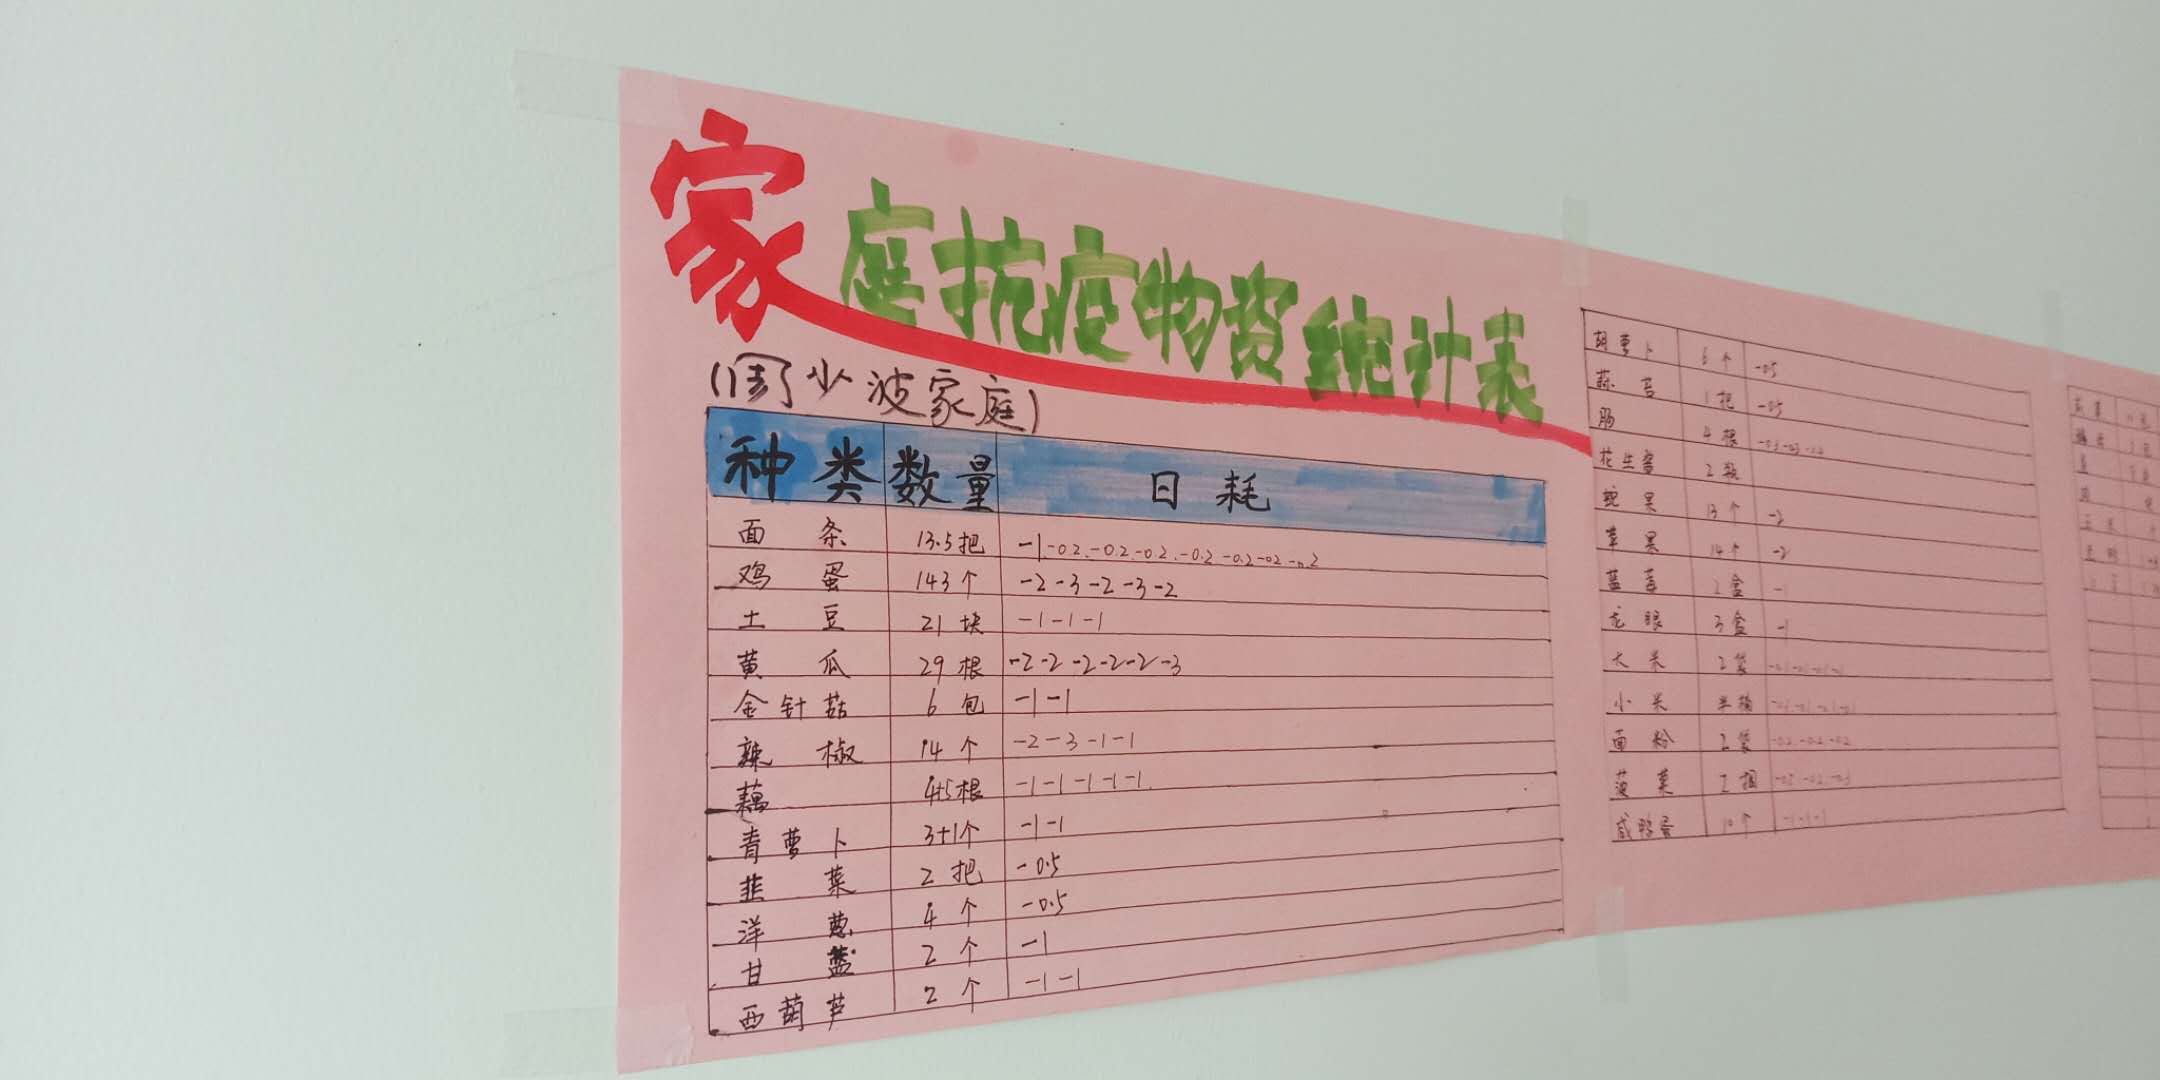 家庭抗疫物资统计表
(周少波家庭)
种类 数量 日耗
面条 13.5把 -1-0.2-0.2-0.2-0.2-0.2-0.2-0.2
鸡蛋 143个 -2-3-2-3-2
土豆 21块 -1-1-1
黄瓜 29根 -2-2-2-2-2-3
金针菇 6包 -1-1
辣椒 14个 -2-3-1-1
藕 4+5根 -1-1-1-1-1
青萝卜 3+1个 -1-1
韭菜 2把 -0.5
洋葱 4个 -0.5
甘蓝 2个 -1
西葫芦 2个 -1-1
胡萝卜 6个 -0.5
蒜苔 1把 -0.5
肠 4根
花生酱 2瓶
蛇果 13个 -2
苹果 14个 -2
蓝莓 2盒 -1
龙眼 3盒 -1
大米 2袋
小米 半桶
面粉 2袋 -0.2-0.2-0.2
菠菜 2捆
咸鸭蛋 10个 -1-1-1